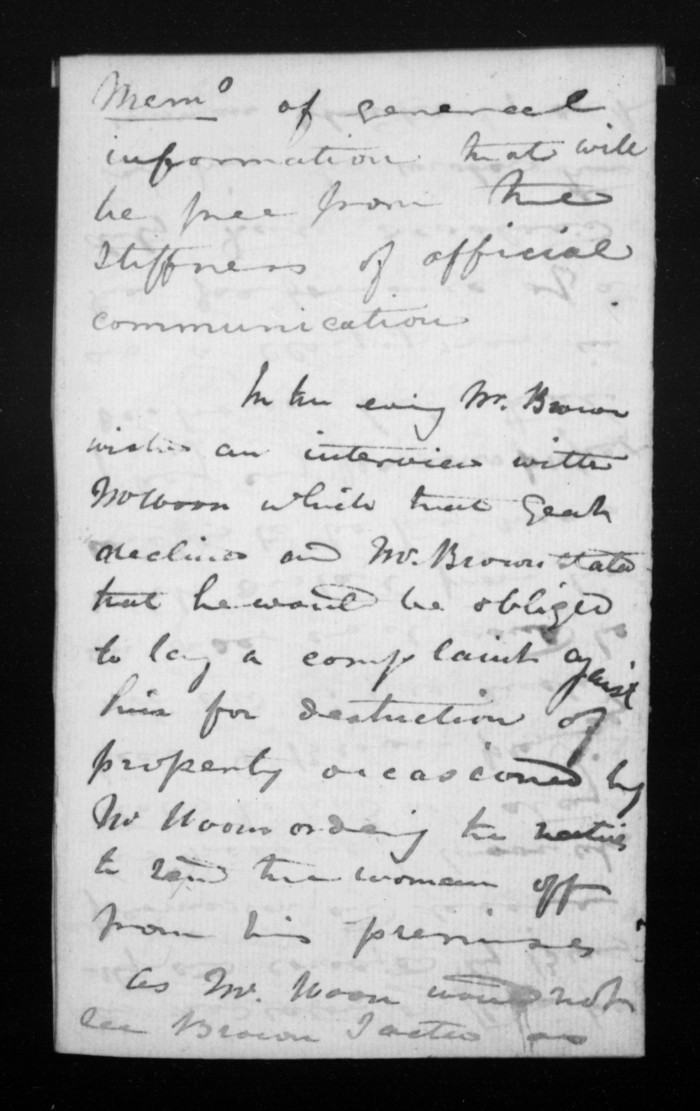 Memo of general
information that will
be free from the
stiffness of official
communication
In the eving Mr. Brown
wishes an interview with
Mr Woon which that Gent
declines and Mr. Brown states
that he would be obliged
to lay a complaint against
him for destruction of
property occasioned by
Mr Woon ordering the natives
to the woman off
from his premises
as Mr. Woon would not
see Brown I acted as